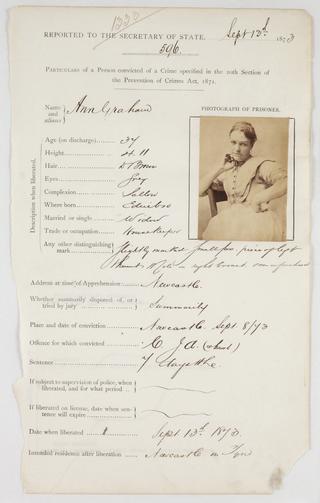 1330
REPORTED TO THE SECRETARY OF STATE. Sept 13th 1873
596.
PARTICULARS of a Person convicted of a Crime specified in the 20th Section of
the Prevention of Crimes Act, 1871.
Name and aliases Ann Graham
PHOTOGRAPH OF PRISONER.
Description when liberated.
Age (on discharge) 37
Height 4 11
Hair D Brown
Eyes Grey
Complexion Sallow
Where born
Married or single Widow
Trade or occupation Housekeeper
Any other distinguishing mark Slightly marked small pox, piece of left
thumb
Address at time of Apprehension Newcastle.
Whether summarily disposed of, or tried by jury Summarily
Place and date of conviction Newcastle Sept 8/73
Offence for which convicted
Sentence 7 days
If subject to supervision of police, when liberated, and for what period
If liberated on license, date when sentence will expire
Date when liberated Sept 13th 1873.
Intended residence after liberation Newcastle on Tyne